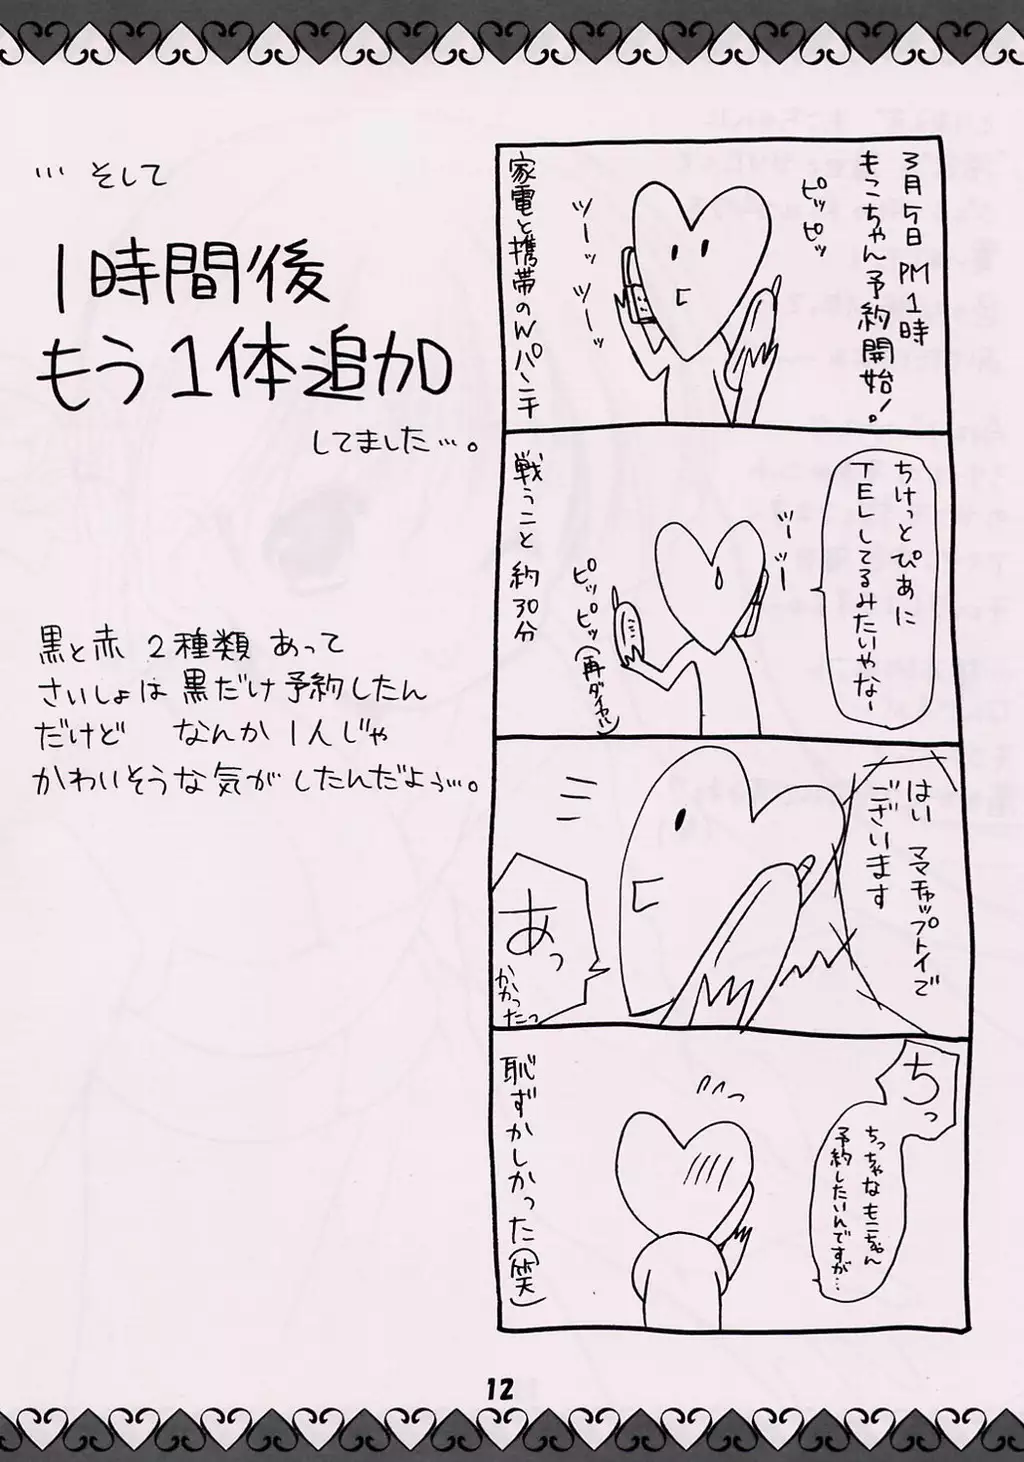 3月5日 PM1時
もこちゃん予約開始!。
ピッピッ
ツーッ
ツーッ
家電と携帯のWパンチ
ちけっとぴあに
TELしてるみたいやなー
ツー
ツー
ピッ
ピッ
(再ダイヤル)
戦うこと約30分
はい ママチャップトイで
ございます
あっ
かかったっ
ちっ
ちっちゃなもこちゃん
予約したいんですが…
恥ずかしかった(笑)
… そして
1時間後
もう1体追加
してました…。
黒と赤 2種類 あって
さいしょは 黒だけ予約したん
だけど なんか 1人じゃ
かわいそうな気が したんだよぅ…。
12